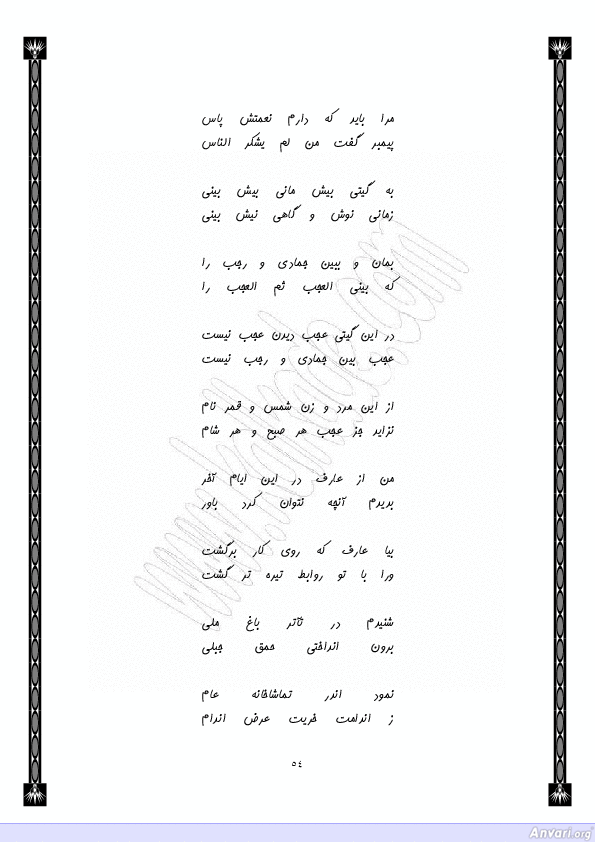 مرا باید که دارم نعمتش پاس
پیمبر گفت من لم یشکر الناس
به گیتی بیش مانی بیش بینی
زمانی نوش و گاهی نیش بینی
بمان و ببین جمادی و رجب را
که بینی العجب ثم العجب را
در این گیتی عجب دیدن عجب نیست
عجب بین جمادی و رجب نیست
از این مرد و زن شمس و قمر نام
نزاید جز عجب هر صبح و هر شام
من از عارف در این ایام آخر
بدیدم آنچه نتوان کرد باور
بیا عارف که روی کار برگشت
ورا با تو روابط تیره تر گشت
شنیدم در تاتر باغ ملی
برون انداختی حمق جبلی
نمود اندر تماشاخانه عام
ز اندامت خریت عرض اندام
٥٤
Anvari.org